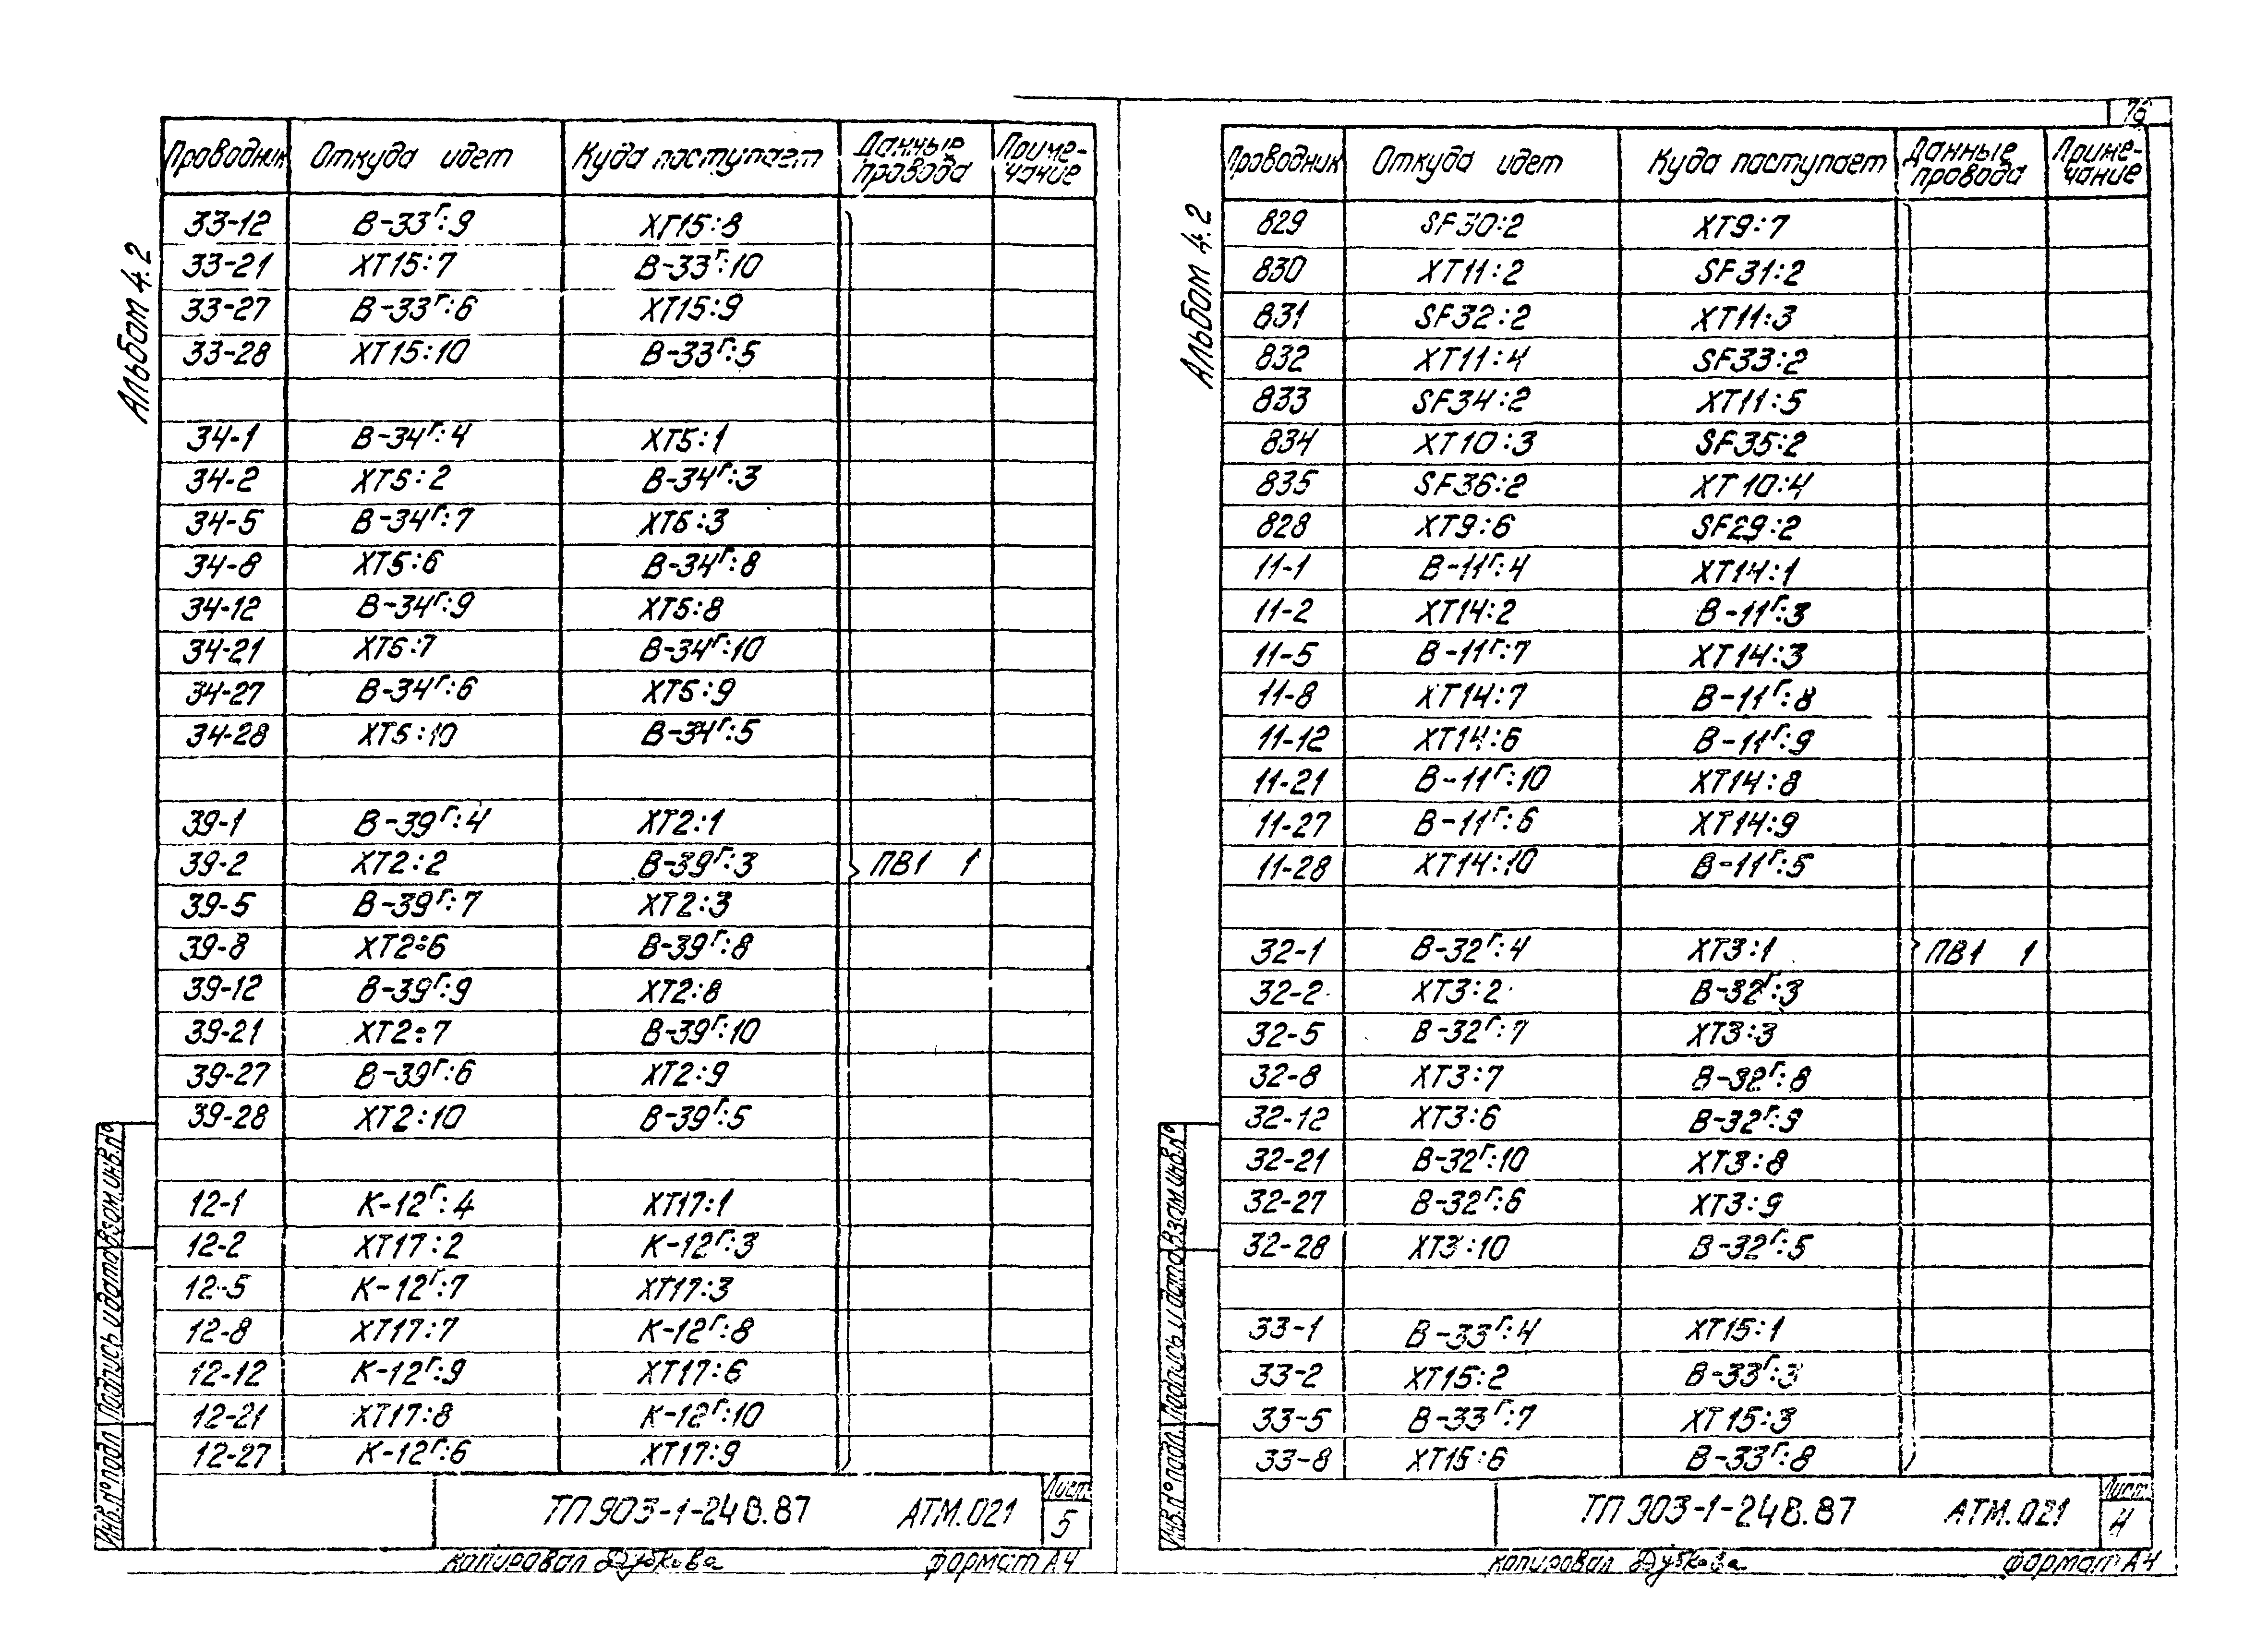 Альбом 4.2
Проводник Откуда идет Куда поступает Данные провода Примечание
33-12 В-33Г:9 ХТ15:8
33-21 ХТ15:7 В-33Г:10
33-27 В-33Г:6 ХТ15:9
33-28 ХТ15:10 В-33Г:5
34-1 В-34Г:4 ХТ5:1
34-2 ХТ5:2 В-34Г:3
34-5 В-34Г:7 ХТ5:3
34-8 ХТ5:6 В-34Г:8
34-12 В-34Г:9 ХТ5:8
34-21 ХТ5:7 В-34Г:10
34-27 В-34Г:6 ХТ5:9
34-28 ХТ5:10 В-34Г:5
39-1 В-39Г:4 ХТ2:1
39-2 ХТ2:2 В-39Г:3 ПВ1 1
39-5 В-39Г:7 ХТ2:3
39-8 ХТ2:6 В-39Г:8
39-12 В-39Г:9 ХТ2:8
39-21 ХТ2:7 В-39Г:10
39-27 В-39Г:6 ХТ2:9
39-28 ХТ2:10 В-39Г:5
12-1 К-12Г:4 ХТ17:1
12-2 ХТ17:2 К-12Г:3
12-5 К-12Г:7 ХТ17:3
12-8 ХТ17:7 К-12Г:8
12-12 К-12Г:9 ХТ17:6
12-21 ХТ17:8 К-12Г:10
12-27 К-12Г:6 ХТ17:9
Инв.№подл. Подпись и дата Взам.инв.№
ТП 903-1-248.87 АТМ.021 Лист 5
копировал Дубкова формат А4
76
Альбом 4.2
Проводник Откуда идет Куда поступает Данные провода Примечание
829 SF30:2 ХТ9:7
830 ХТ11:2 SF31:2
831 SF32:2 ХТ11:3
832 ХТ11:4 SF33:2
833 SF34:2 ХТ11:5
834 ХТ10:3 SF35:2
835 SF36:2 ХТ10:4
828 ХТ9:6 SF29:2
11-1 В-11Г:4 ХТ14:1
11-2 ХТ14:2 В-11Г:3
11-5 В-11Г:7 ХТ14:3
11-8 ХТ14:7 В-11Г:8
11-12 ХТ14:6 В-11Г:9
11-21 В-11Г:10 ХТ14:8
11-27 В-11Г:6 ХТ14:9
11-28 ХТ14:10 В-11Г:5
32-1 В-32Г:4 ХТ3:1 ПВ1 1
32-2 ХТ3:2 В-32Г:3
32-5 В-32Г:7 ХТ3:3
32-8 ХТ3:7 В-32Г:8
32-12 ХТ3:6 В-32Г:9
32-21 В-32Г:10 ХТ3:8
32-27 В-32Г:6 ХТ3:9
32-28 ХТ3:10 В-32Г:5
33-1 В-33Г:4 ХТ15:1
33-2 ХТ15:2 В-33Г:3
33-5 В-33Г:7 ХТ15:3
33-8 ХТ15:6 В-33Г:8
Инв.№подл. Подпись и дата Взам.инв.№
ТП 903-1-248.87 АТМ.021 Лист 4
копировал Дубкова формат А4